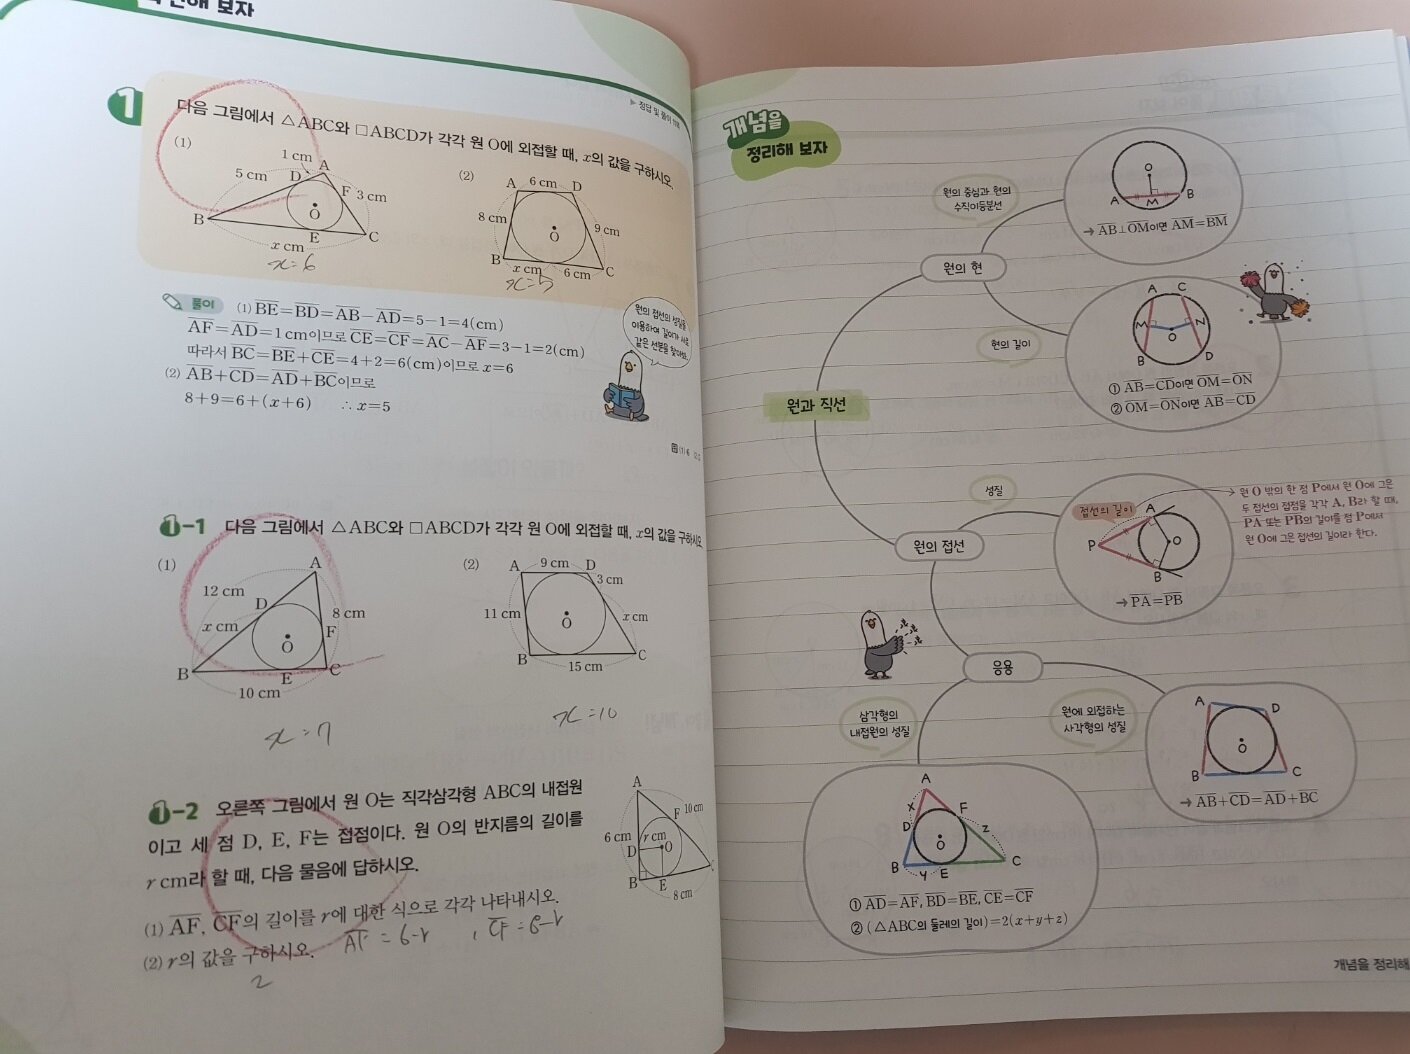 해 보자
1
다음 그림에서 △ABC와 □ABCD가 각각 원 O에 외접할 때, x의 값을 구하시오.
(1)
1 cm
A
5 cm
D
F
3 cm
O
B
E
C
x cm
x=6
(2)
A
6 cm
D
8 cm
9 cm
O
B
x cm
6 cm
C
x=5
풀이
(1) BE=BD=AB−AD=5−1=4(cm)
AF=AD=1 cm이므로 CE=CF=AC−AF=3−1=2(cm)
따라서 BC=BE+CE=4+2=6(cm)이므로 x=6
(2) AB+CD=AD+BC이므로
8+9=6+(x+6) ∴ x=5
원의 접선의 성질을
이용하여 길이가 서로
같은 선분을 찾아봐요.
1-1 다음 그림에서 △ABC와 □ABCD가 각각 원 O에 외접할 때, x의 값을 구하시오
(1)
A
12 cm
D
8 cm
x cm
F
O
B
E
C
10 cm
x=7
(2)
A
9 cm
D
3 cm
11 cm
x cm
O
B
C
15 cm
x=10
1-2 오른쪽 그림에서 원 O는 직각삼각형 ABC의 내접원
이고 세 점 D, E, F는 접점이다. 원 O의 반지름의 길이를
r cm라 할 때, 다음 물음에 답하시오.
(1) AF, CF의 길이를 r에 대한 식으로 각각 나타내시오.
AF = 6-r , CF = 8-r
(2) r의 값을 구하시오.
2
A
10 cm
F
6 cm
r cm
D
O
B
E
8 cm
개념을
정리해 보자
원과 직선
원의 현
원의 중심과 현의
수직이등분선
O
A
M
B
→ AB⊥OM이면 AM=BM
현의 길이
A
C
M
N
O
B
D
① AB=CD이면 OM=ON
② OM=ON이면 AB=CD
원의 접선
성질
접선의 길이
A
P
O
B
→ PA=PB
→ 원 O 밖의 한 점 P에서 원 O에 그은
두 접선의 접점을 각각 A, B라 할 때,
PA 또는 PB의 길이를 점 P에서
원 O에 그은 접선의 길이라 한다.
응용
삼각형의
내접원의 성질
A
x
F
D
z
O
B
y
E
C
① AD=AF, BD=BE, CE=CF
② (△ABC의 둘레의 길이)=2(x+y+z)
원에 외접하는
사각형의 성질
A
D
O
B
C
→ AB+CD=AD+BC
개념을 정리해